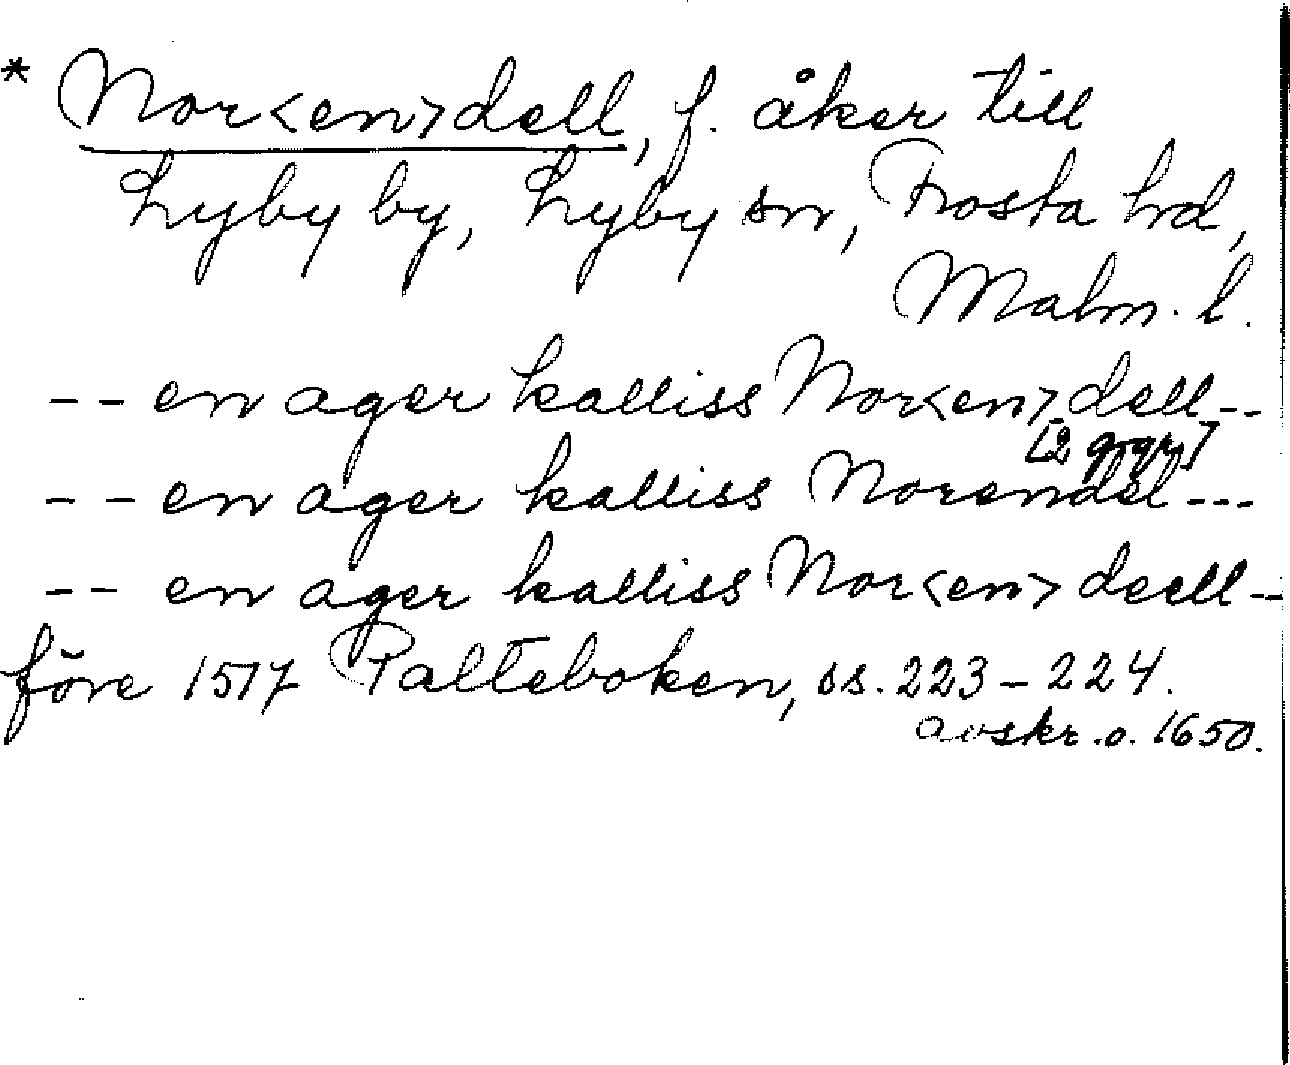 * Nor<en>dell, f. åker till
Lyby by, Lyby sn, Frosta hd,
Malm. l.
-- en ager kalliss Nor<en>dell--
[2 ggr]
-- en ager kalliss Norendel---
-- en ager kalliss Nor<en>deell--
före 1517 Palteboken, ss. 223-224.
avskr. o. 1650.